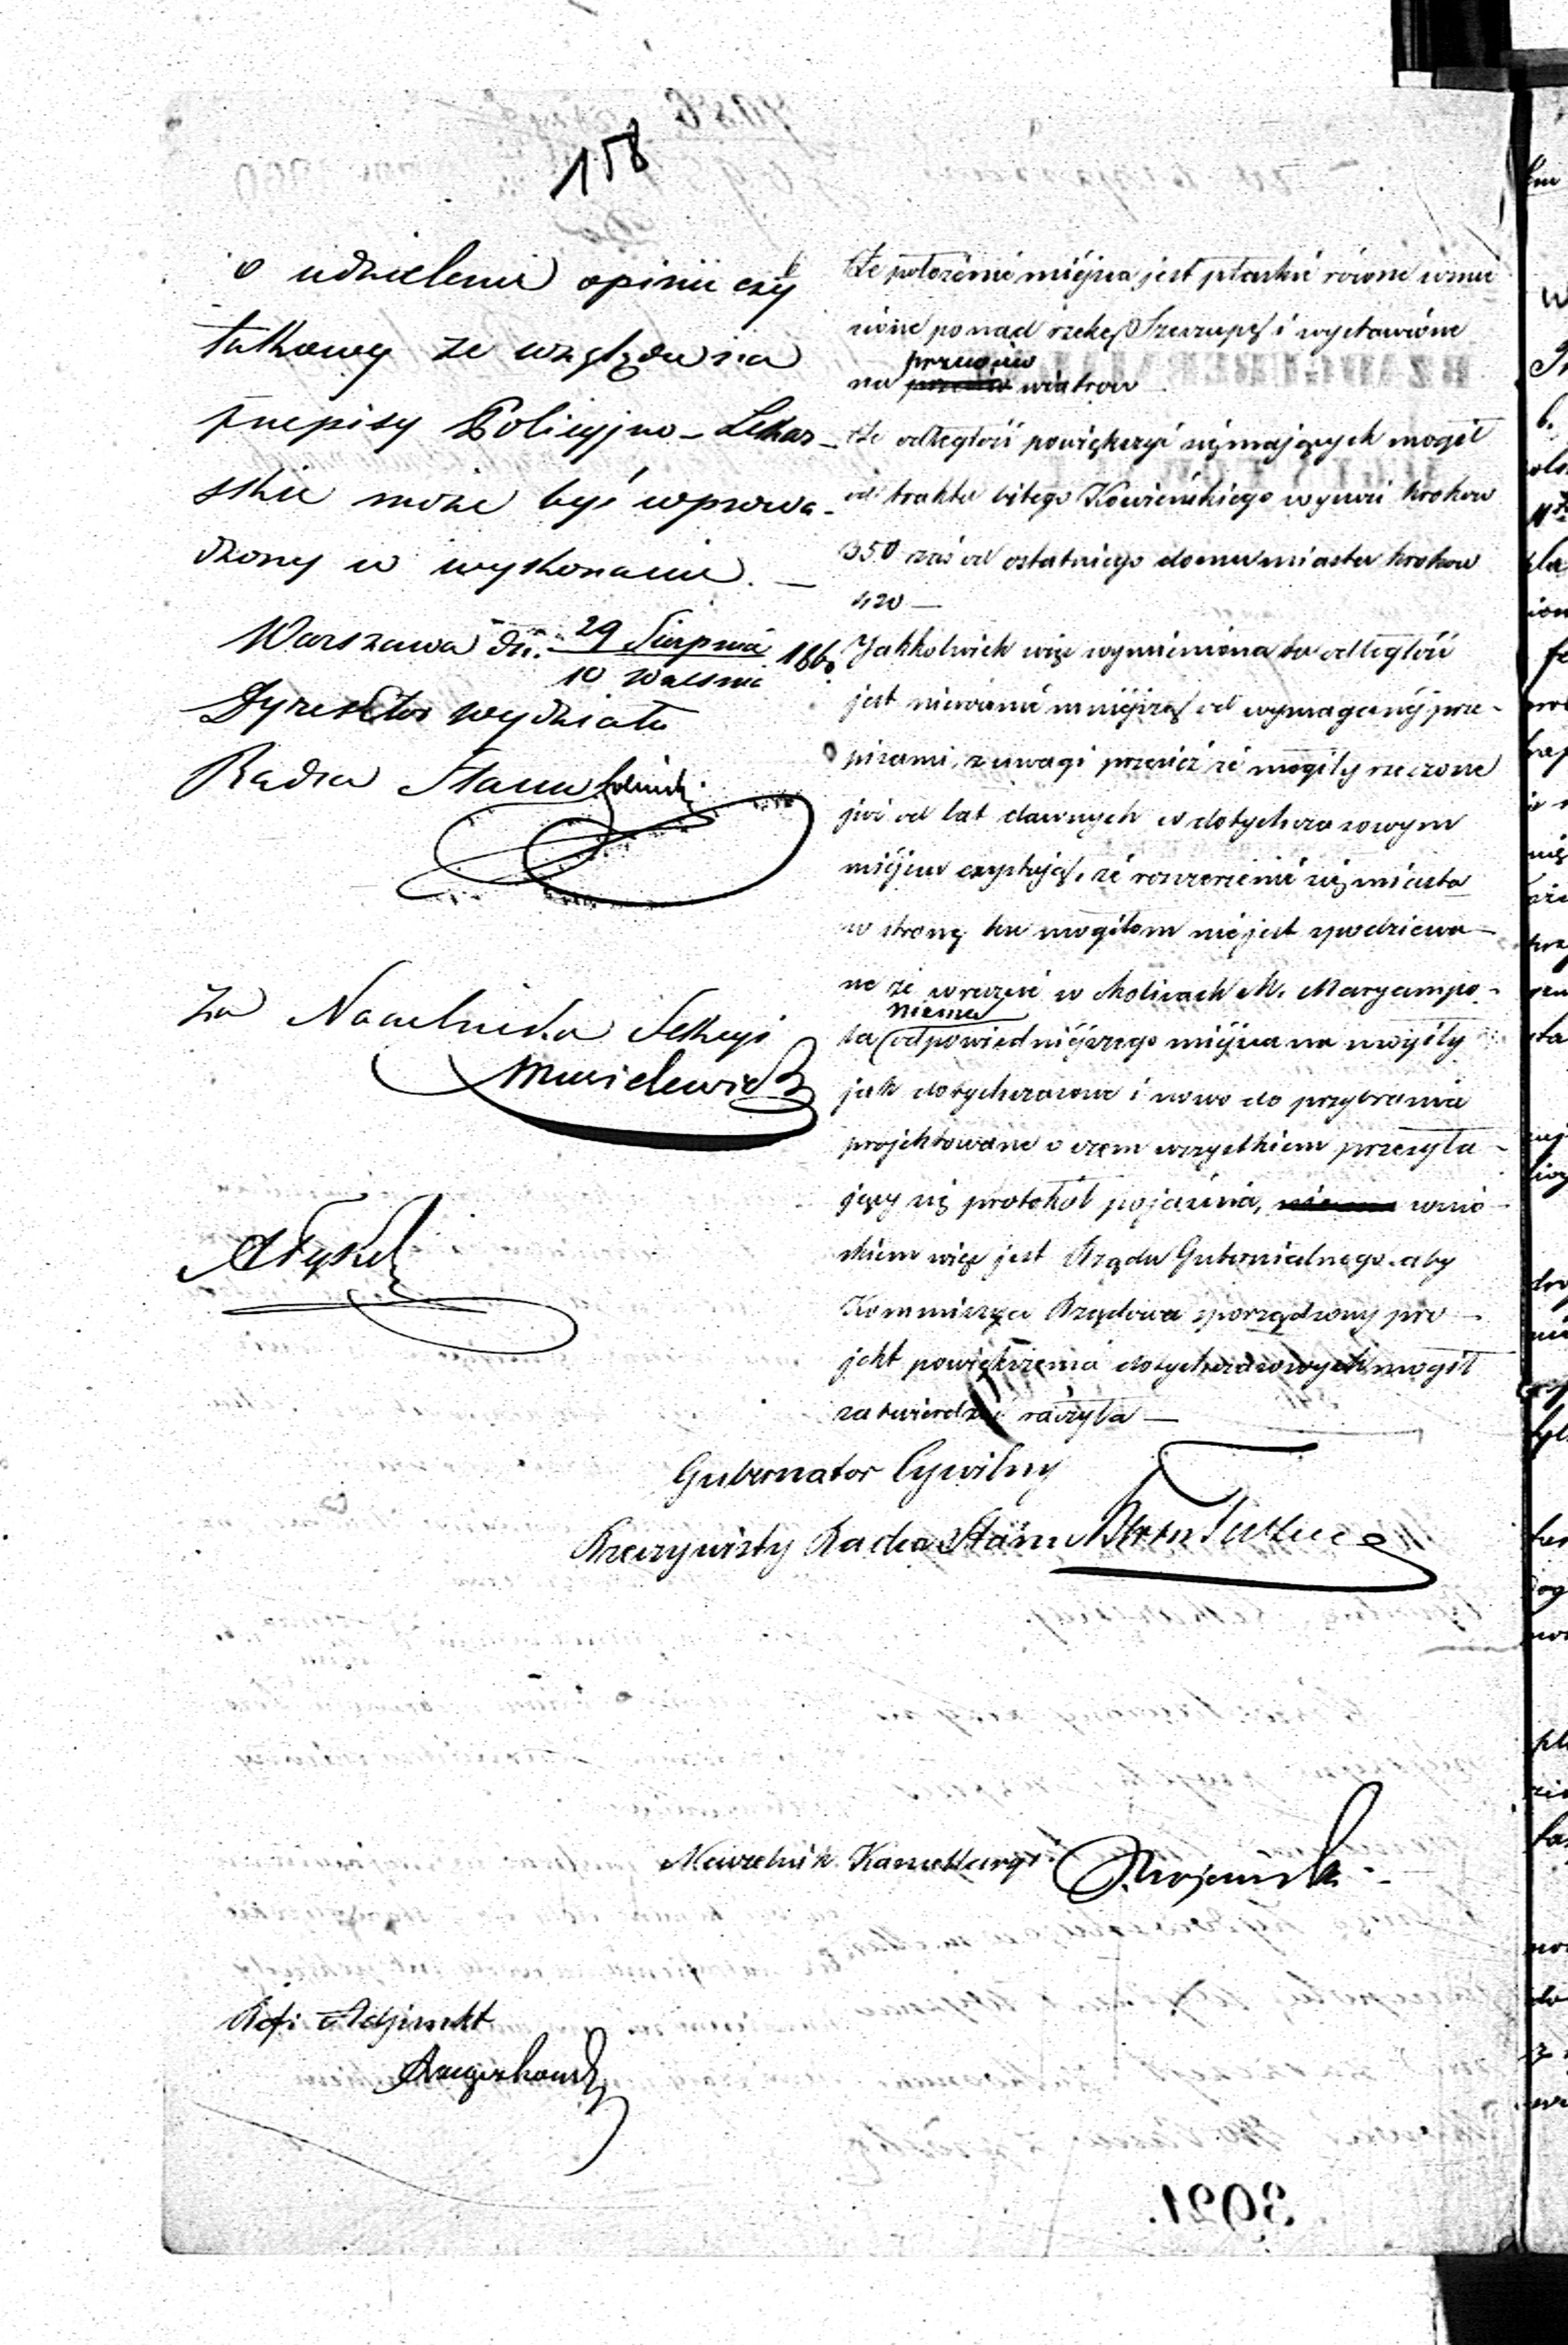 158
o udzielenie opinii czy
takowy ze względu na
przepisy Policyjno-Lekar-
skie może być wprowa-
dzony w wykonanie. —
Warszawa dn. 29 Sierpnia 1860
10 Wrześnie
Dyrektor Wydziału
Radca Stanu
Za Naczelnika Sekcyi
że położenie miejsca jest płaskie równe wznie
sione ponad rzekę Szeszupę i wystawione
przewiew
na wiatrow
że odległość powiększyć się mających mogił
od traktu bitego Kowieńskiego wynosi krokow
350 zaś od ostatniego domu miasta krokow
420 —
Jakkolwiek więc wymieniona ta odległość
jest mniejszą od wymaganéj prze-
pisami, z uwagi przecież że mogiły rzeczone
już od lat dawnych w dotychczasowym
miejscu exystują, że rozszerzenie się miasta
w stronę ku mogiłom nie jest spodziewa-
ne że wreszcie w okolicach M. Maryampo-
niema
la odpowiedniejszego miejsca na mogiły
jak dotychczasowe i nowo do przybrania
projektowane o czem wszystkiem przesyła-
jący się protokół pojaśnia, wnio-
skiem więc jest Rządu Gubernialnego aby
Kommissya Rządowa sporządzony pro-
jekt powiększenia dotychczasowych mogił
zatwierdzić raczyła —
Gubernator Cywilny
Rzeczywisty Radca Stanu
Naczelnik Kancellaryi
Adjunkt
3021.